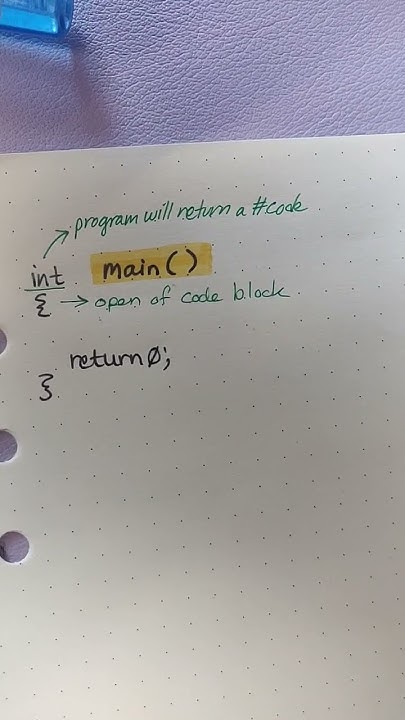 program will return a #code
int main()
{ → open of code block
return 0;
}